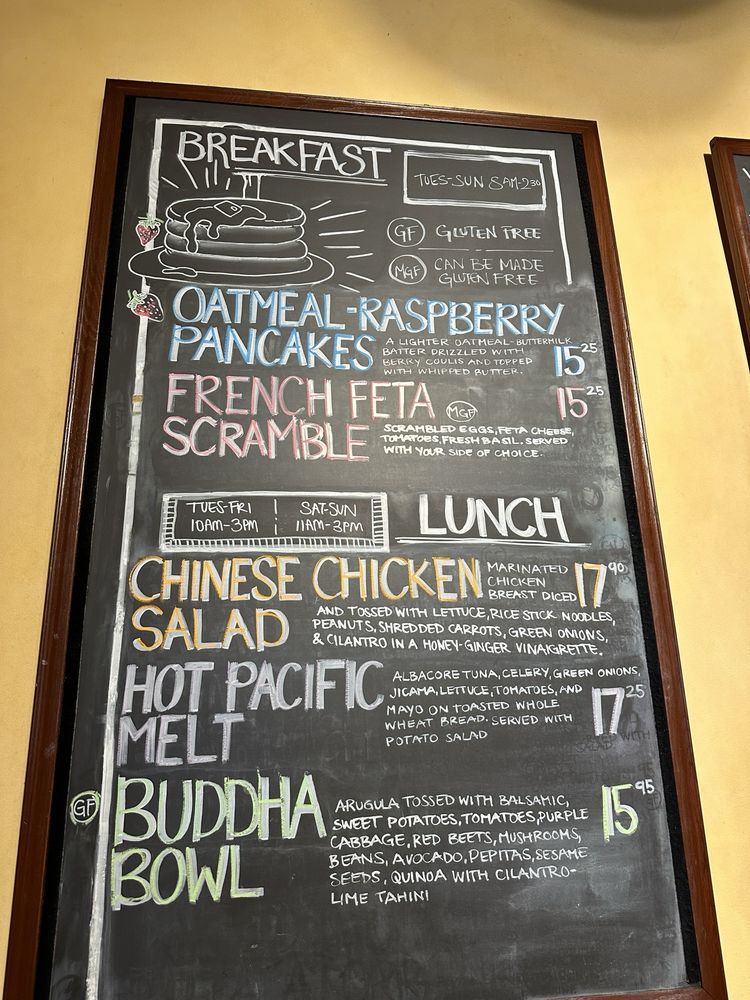 BREAKFAST
TUES-SUN 8AM-230
GF GLUTEN FREE
MGF CAN BE MADE
GLUTEN FREE
OATMEAL-RASPBERRY
PANCAKES
A LIGHTER OATMEAL-BUTTERMILK
BATTER DRIZZLED WITH
BERRY COULIS AND TOPPED
WITH WHIPPED BUTTER.
15 25
FRENCH FETA MGF
SCRAMBLE
15 25
SCRAMBLED EGGS, FETA CHEESE,
TOMATOES, FRESH BASIL. SERVED
WITH YOUR SIDE OF CHOICE.
TUES-FRI | SAT-SUN
10AM-3PM | 11AM-3PM
LUNCH
CHINESE CHICKEN
SALAD
MARINATED
CHICKEN
BREAST DICED
17 90
AND TOSSED WITH LETTUCE, RICE STICK NOODLES,
PEANUTS, SHREDDED CARROTS, GREEN ONIONS,
& CILANTRO IN A HONEY-GINGER VINAIGRETTE.
HOT PACIFIC
MELT
ALBACORE TUNA, CELERY, GREEN ONIONS,
JICAMA, LETTUCE, TOMATOES, AND
MAYO ON TOASTED WHOLE
WHEAT BREAD. SERVED WITH
POTATO SALAD
17 25
GF BUDDHA
BOWL
ARUGULA TOSSED WITH BALSAMIC,
SWEET POTATOES, TOMATOES, PURPLE
CABBAGE, RED BEETS, MUSHROOMS,
BEANS, AVOCADO, PEPITAS, SESAME
SEEDS, QUINOA WITH CILANTRO-
LIME TAHINI
15 95